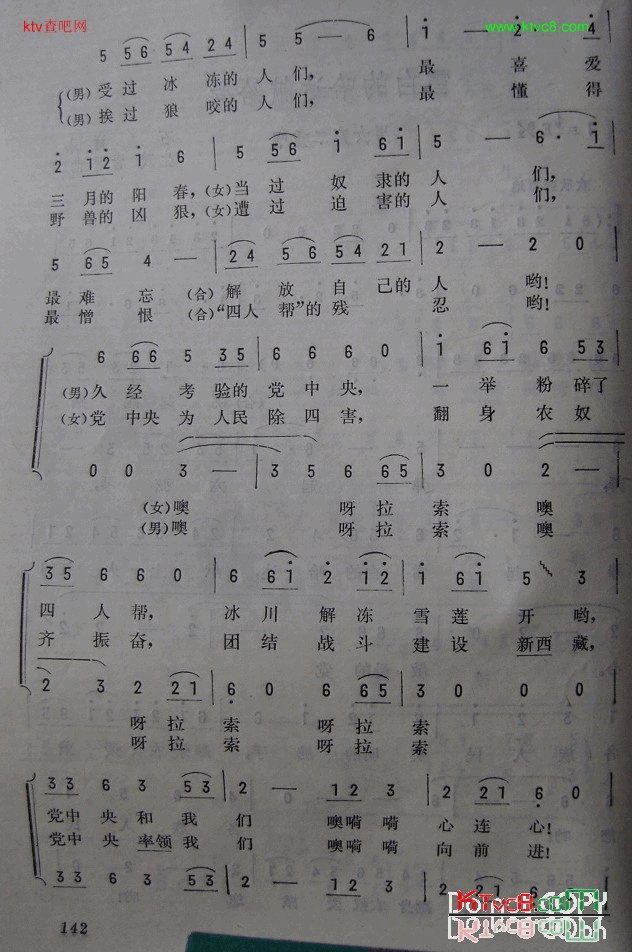 ktv查吧网
www.ktvc8.com
5 56 54 24 5 5 — 6 1 — 2· 4
(男)受过冰冻的人们, 最喜爱
(男)挨过狼咬的人们, 最懂得
2 12 1 6 5 56 1 61 5 — 6· 1
三月的阳春,(女)当过奴隶的人们,
野兽的凶狠,(女)遭过迫害的人们,
5 65 4 — 24 56 54 21 2 — 2 0
最难忘 (合)解放自己的人哟!
最憎恨 (合)“四人帮”的残忍哟!
6 66 5 35 6 6 6 0 1 61 6 53
(男)久经考验的党中央, 一举粉碎了
(女)党中央为人民除四害, 翻身农奴
0 0 3 — 3 5 6 65 3 0 2 —
(女)噢 呀拉索 噢
(男)噢 呀拉索 噢
35 6 6 0 6 61 2 12 1 61 5 3
四人帮, 冰川解冻雪莲开哟,
齐振奋, 团结战斗建设新西藏,
2 3 2 21 6 0 6 65 3 0 0 0
呀拉索 呀拉索
呀拉索 呀拉索
33 6 3 53 2 — 12 3 2 21 6 0
党中央和我们 噢嗬嗬心连心!
党中央率领我们 噢嗬嗬向前进!
33 6 3 53 2 — 12 3 2 21 6 0
142
KTvc8.COM
DO NOT COPY